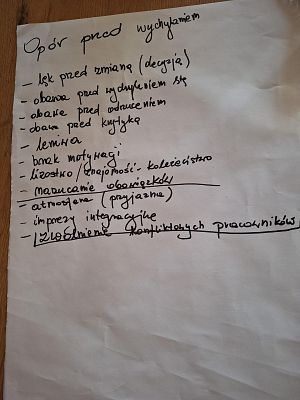 Opór przed wychylaniem
- lęk przed zmianą (decyzją)
- obawa przed wychyleniem się
- obawa przed odrzuceniem
- obawa przed krytyką
- leniwa
- brak motywacji
- bliskość/znajomość - koleżeństwo
- narzucanie obowiązków
- atmosfera (przyjazna)
- imprezy integracyjne
- zwolnienie konfliktowych pracowników